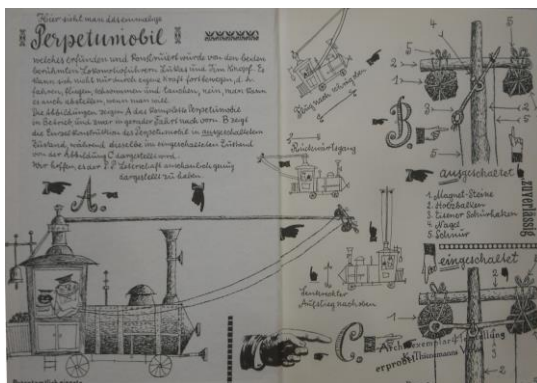 Hier sieht man das einmalige
Perpetumobil
welches erfunden und konstruiert wurde von den beiden
berühmten Lokomotivführern Lukas und Jim Knopf. Es
kann sich nicht nur durch eigene Kraft fortbewegen, d.h.
fahren, fliegen, schwimmen und tauchen, nein, man kann
es auch abstellen, wann man will.
Die Abbildungen zeigen A das komplette Perpetumobil
in Betrieb und zwar in gerader Fahrt nach vorn. B zeigt
die Einzelkonstruktion des Perpetumobils in ausgeschaltetem
Zustand, während dieselbe im eingeschalteten Zustand
von der Abbildung C dargestellt wird.
Wir hoffen, es der Leserschaft anschaulich genug
dargestellt zu haben.
A.
Flug nach schräg oben
Rückwärtsgang
Senkrechter
Aufstieg nach oben
B.
5
4
5
2
1
3
2
5
ausgeschaltet
zuverlässig
1. Magnet-Steine
2. Holzbalken
3. Eiserner Schürhaken
4. Nagel
5. Schnur
eingeschaltet
C.
2
1
3
2
Archivexemplar
erprobt